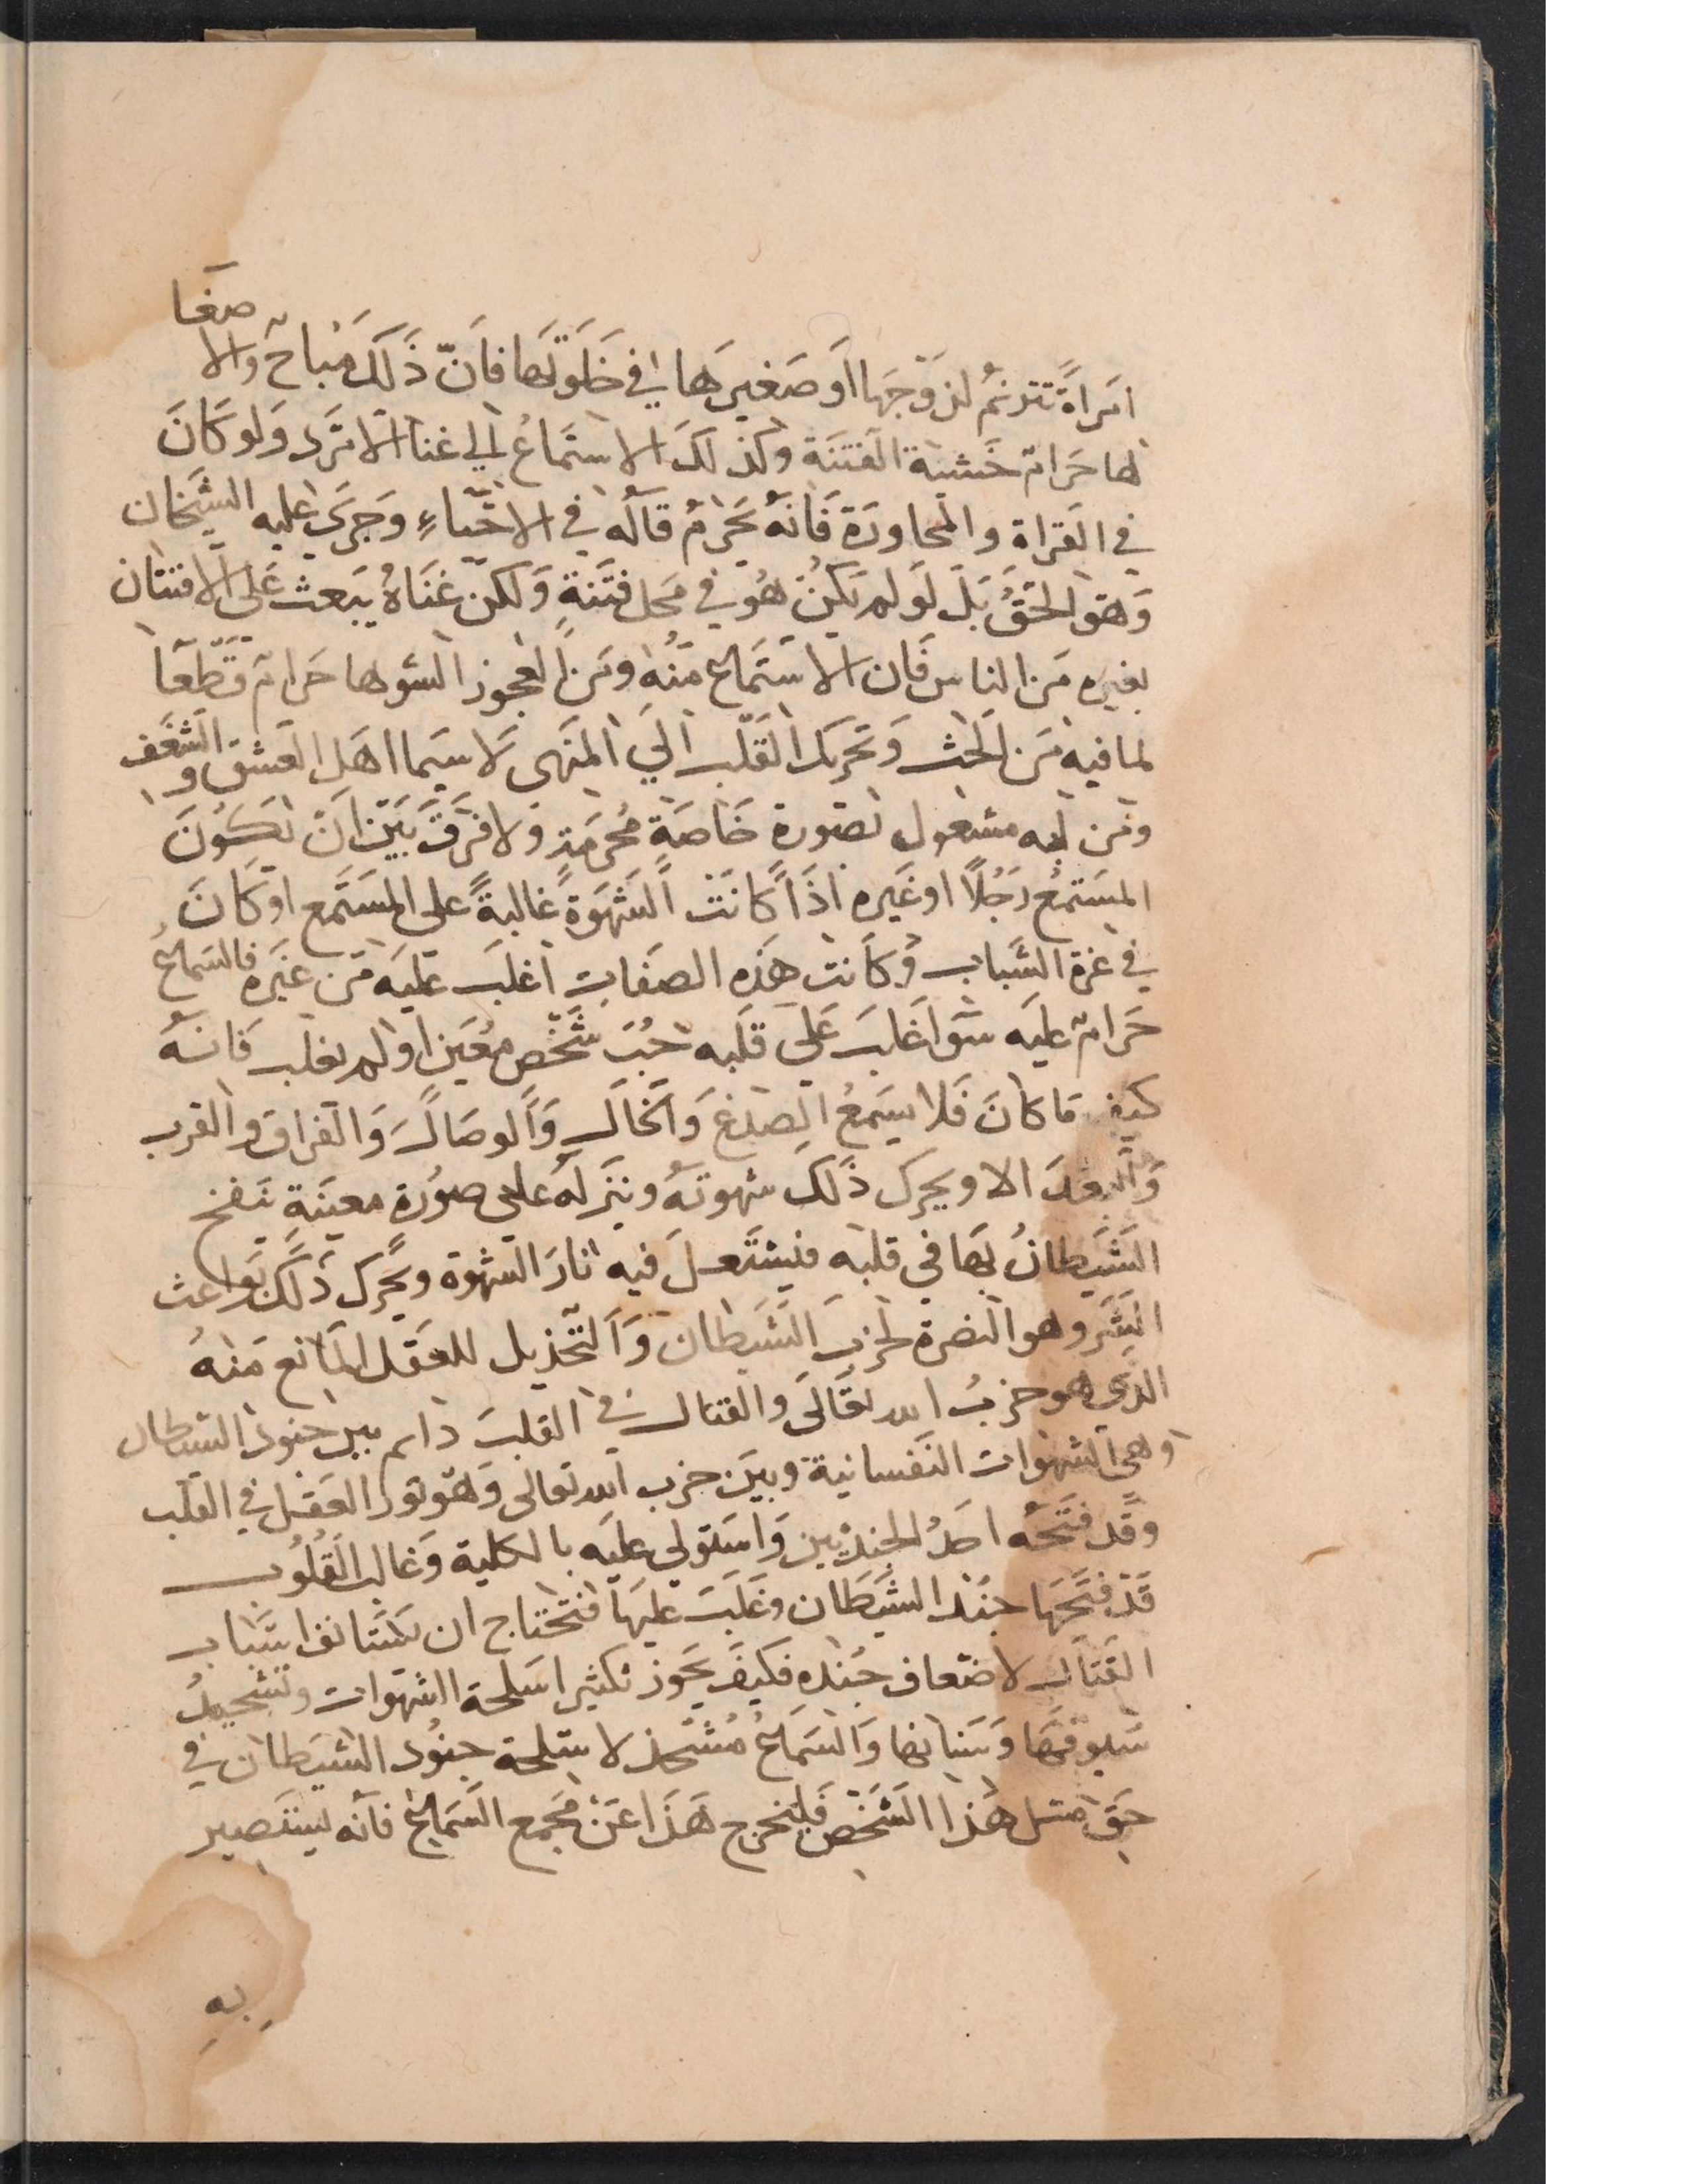 امراة تترنم لزوجها او صغيرها في خلوتها فان ذلك مباح والاصغا
لها حرام خشية الفتنة وكذلك الاستماع الي غنا الامرد ولو كان
في القراة والمحاورة فانه يحرم قاله في الاحياء وجري عليه الشيخان
وهو الحق بل لو لم تكن هو في محل فتنة ولكن غناه يبعث علي الافتتان
بغيره من الناس فان الاستماع منه ومن العجوز الشوها حرام قطعا
لما فيه من الحث وتحريك القلب الي المنهى لا سيما اهل العشق والشغف
ومن لبه مشغول بصورة خاصة محرمة ولا فرق بين ان تكون
المستمع رجلا او غيره اذا كانت الشهوة غالبة على المستمع او كان
في غرة الشباب وكانت هذه الصفات اغلب عليه من غيره فالسماع
حرام عليه سوا غلب علي قلبه حب شخص معين او لم يغلب فانه
كيف ما كان فلا يسمع الصدغ والخال والوصال والفراق والقرب
والبعد الا ويحرك ذلك شهوته وينزله علي صورة معينة ينفخ
الشيطان بها في قلبه فيشتعل فيه نار الشهوة ويحرك ذلك بواعث
الشر وهو النصرة لحزب الشيطان والتخذيل للعقل المانع منه
الذي هو حزب الله تعالى والقتال في القلب دايم بين جنود الشيطان
وهي الشهوات النفسانية وبين حزب الله تعالى وهو نور العقل في القلب
وقد فتحه احد الجندين واستولي عليه بالكلية وغالب القلوب
قد فتحها جند الشيطان وغلب عليها فتحتاج ان تستانف اسباب
القتال لاضعاف جنده فكيف يجوز تكثير اسلحة الشهوات وتشحيذ
سيوفها وسنانها والسماع مشحذ لاسلحة جنود الشيطان في
حق مثل هذا الشخص فليخرج هذا عن مجمع السماع فانه ليستصير
به